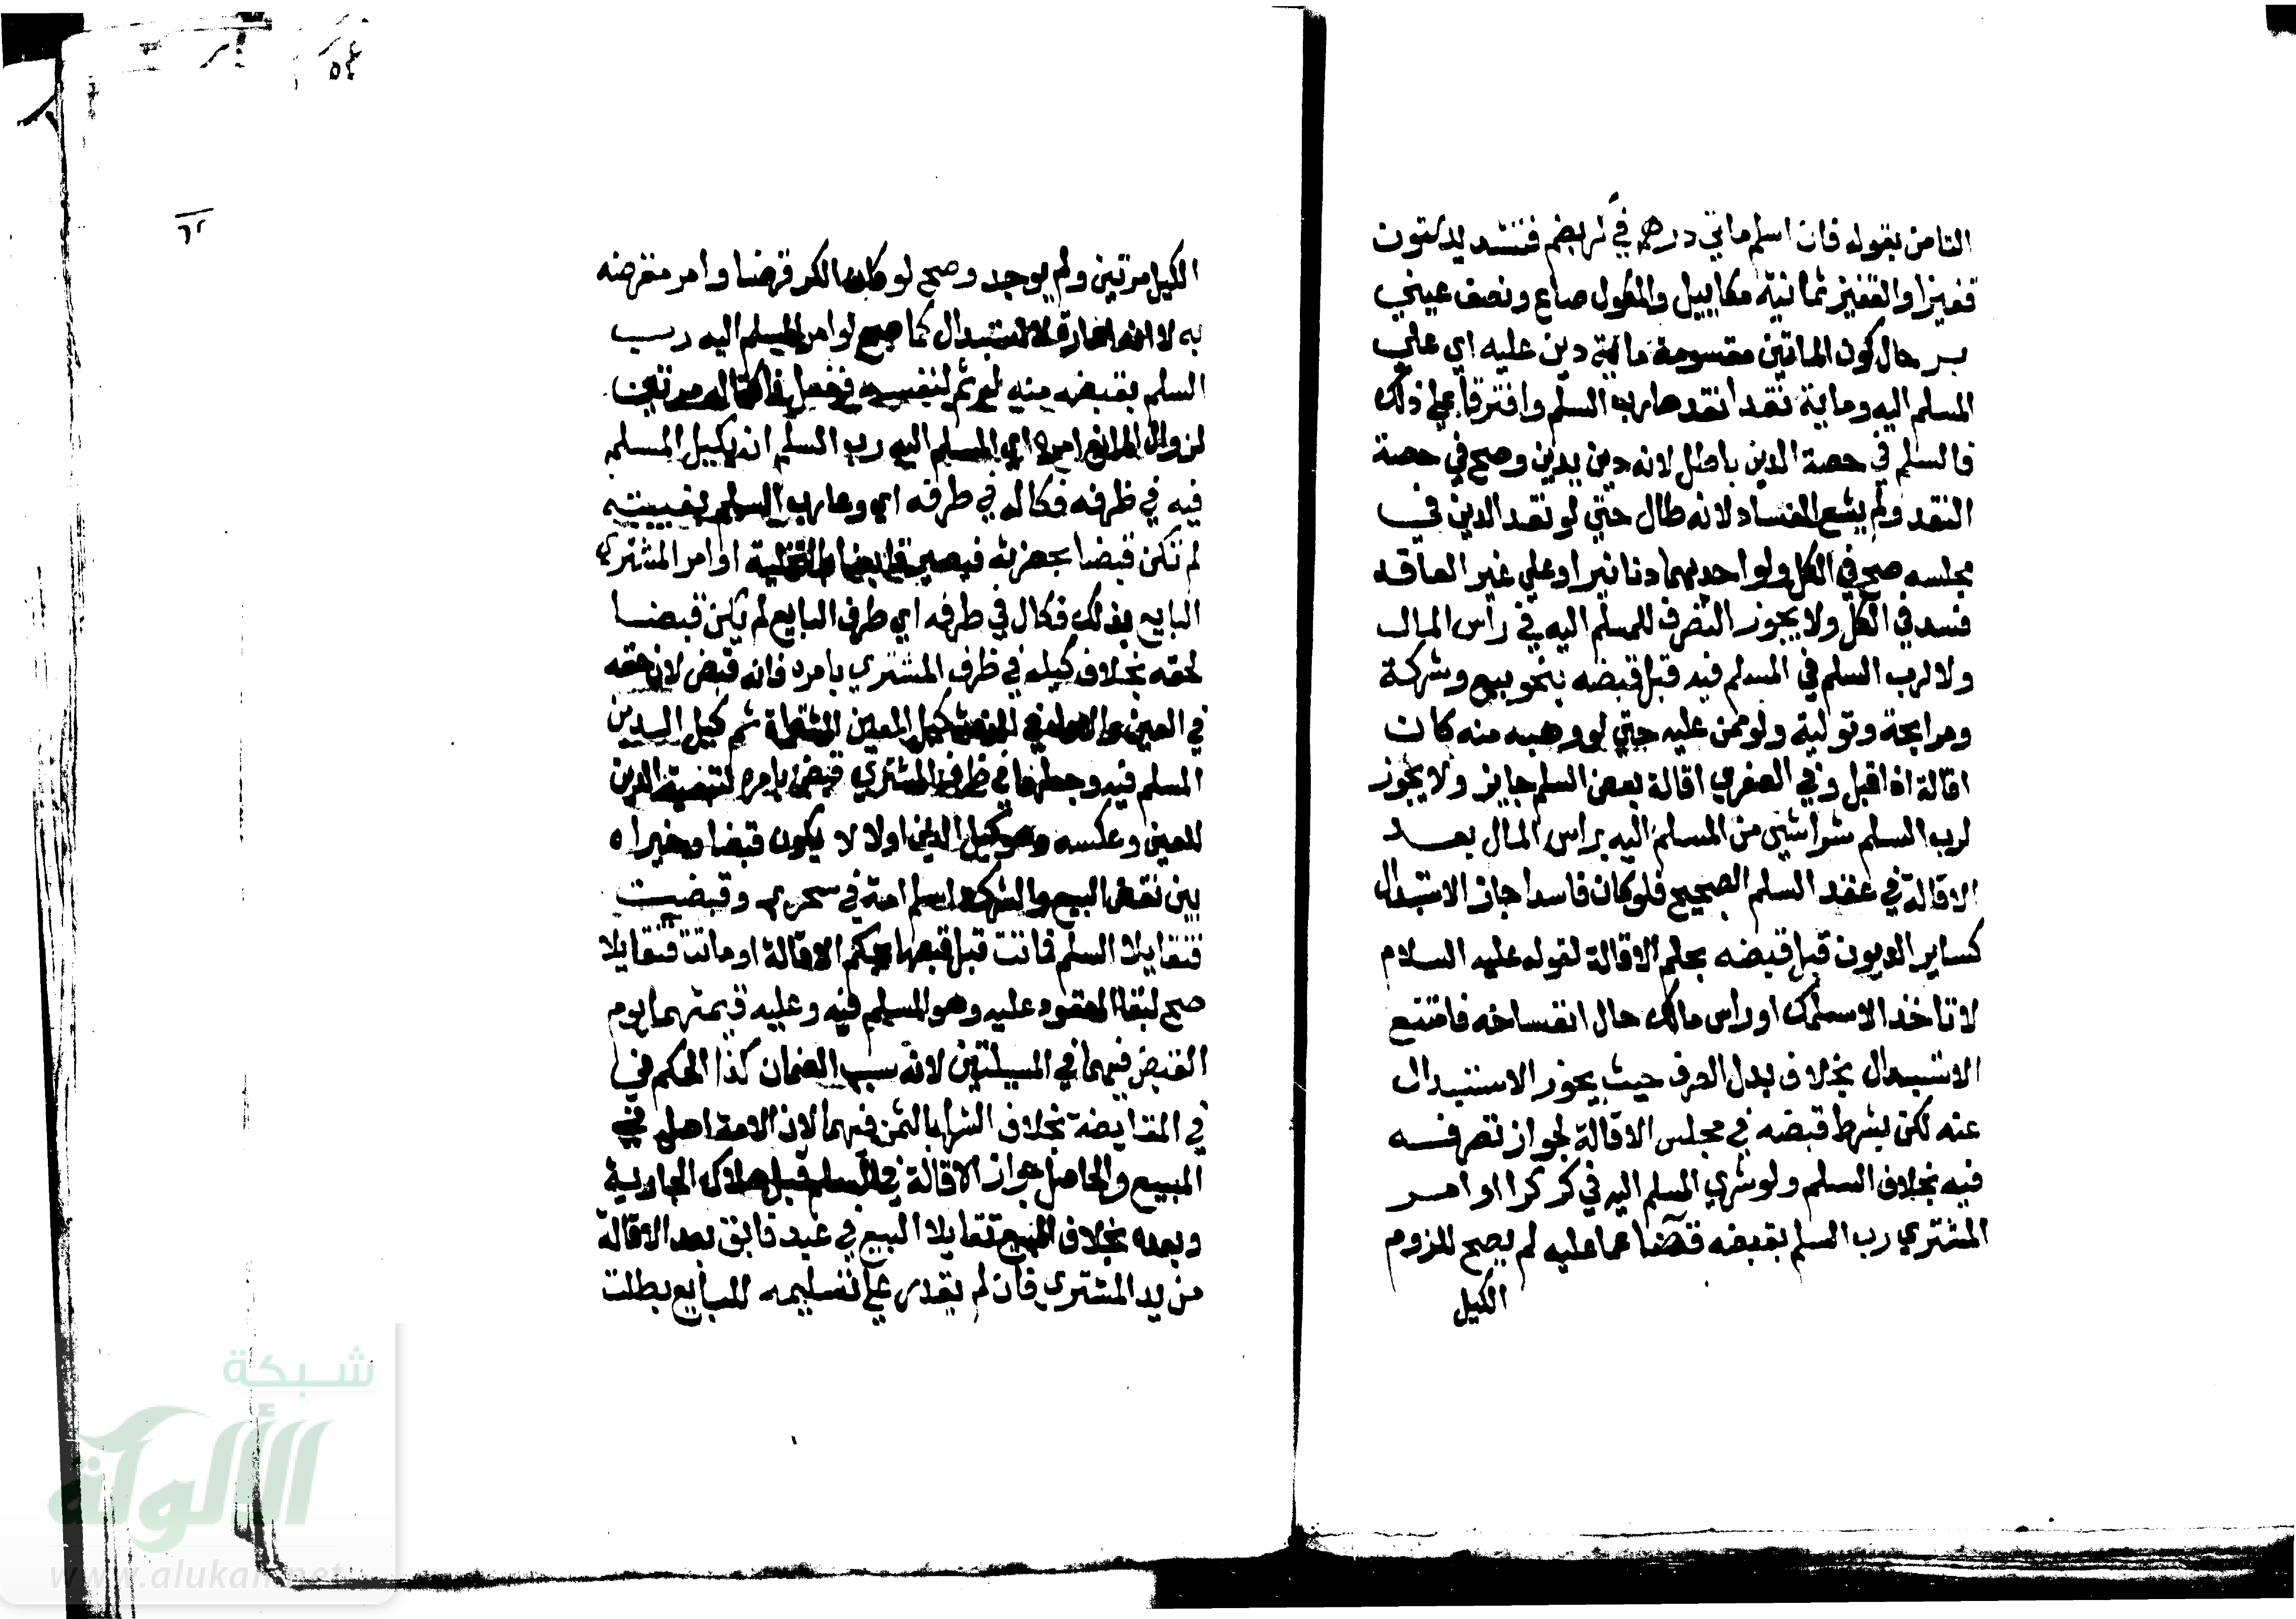 الثامن بقوله فان اسلم ماتي درهم في كر بضم فتشديد ستون
قفيزا والقفيز ثمانية مكاييل والمكول صاع ونصف عيني
بر حال كون الماتين مقسومة ماية دين عليه اي علي
المسلم اليه وماية نقد انقدها رب السلم وافترقا علي ذلك
فالسلم في حصة الدين باطل لانه دين بدين وصح في حصة
النقد ولم يشع الفساد لانه طال حتي لو نقد الدين في
مجلسه صح في الكل ولو احديهما دنانيرا وعلي غير العاقد
فسد في الكل ولا يجوز التصرف للمسلم اليه في راس المال
ولا لرب السلم في المسلم فيه قبل قبضه بنحو بيع وشركة
ومرابحة وتولية ولو ممن عليه حتي لو وهبه منه كان
اقالة اذا قبل وفي الصغري اقالة بعض السلم جايز ولا يجوز
لرب السلم شرا شي من المسلم اليه براس المال بعد
الاقالة في عقد السلم الصحيح فلو كان فاسدا جاز الاستبدال
كساير الديون قبل قبضه بحكم الاقالة لقوله عليه السلام
لا تاخذ الا سلمك او راس مالك حال انفساخه فامتنع
الاستبدال بخلاف بدل الصرف حيث يجوز الاستبدال
عنه لكن يشرط قبضه في مجلس الاقالة لجواز تصرفه
فيه بخلاف السلم ولو شري المسلم اليه في كر كرا وامر
المشتري رب السلم بقبضه قضا عما عليه لم يصح للزوم
الكيل
الكيل مرتين ولم يوجد وصح لو كان الكر قرضا وامر مقرضه
به لانه اعارة لا استبدال كما صح لو امر المسلم اليه رب
السلم بقبضه منه له ثم لنفسه ففعل فاكتاله مرتين
لزوال المانع امره اي المسلم اليه رب السلم ان يكيل المسلم
فيه في ظرفه فكاله في ظرفه اي وعا رب السلم بغيبته
لم تكن قبضا بحضرته فيصير قابضا بالتخلية او امر المشتري
البايع بذلك فكال في ظرفه اي ظرف البايع لم يكن قبضا
لحقه بخلاف كيله في ظرف المشتري بامره فانه قبض لان حقه
في العين والاول في الذمة كيل العين المشتراة ثم كيل الدين
المسلم فيه وجعلهما في ظرف المشتري قبض بامره لتبعية الدين
للعين وعكسه وهو كيل الدين اولا لا يكون قبضا وخيراه
بين نقض البيع والشركة اسلم امة في كر بر وقبضت
فتقايلا السلم فماتت قبل قبضها بحكم الاقالة او ماتت فتقايلا
صح لبقا المعقود عليه وهو المسلم فيه وعليه قيمتهما يوم
القبض فيهما في المسيلتين لانه سبب الضمان كذا الحكم في
في المقايضة بخلاف الشرا بالثمن فيهما لان الامة اصل في
المبيع والحاصل جواز الاقالة في السلم قبل هلاك الجارية
وبعده بخلاف البيع تقايلا البيع في عبد فابق بعد الاقالة
من يد المشتري فان لم يقدر علي تسليمه للبايع بطلت
شبكة
الألوكة
www.alukah.net